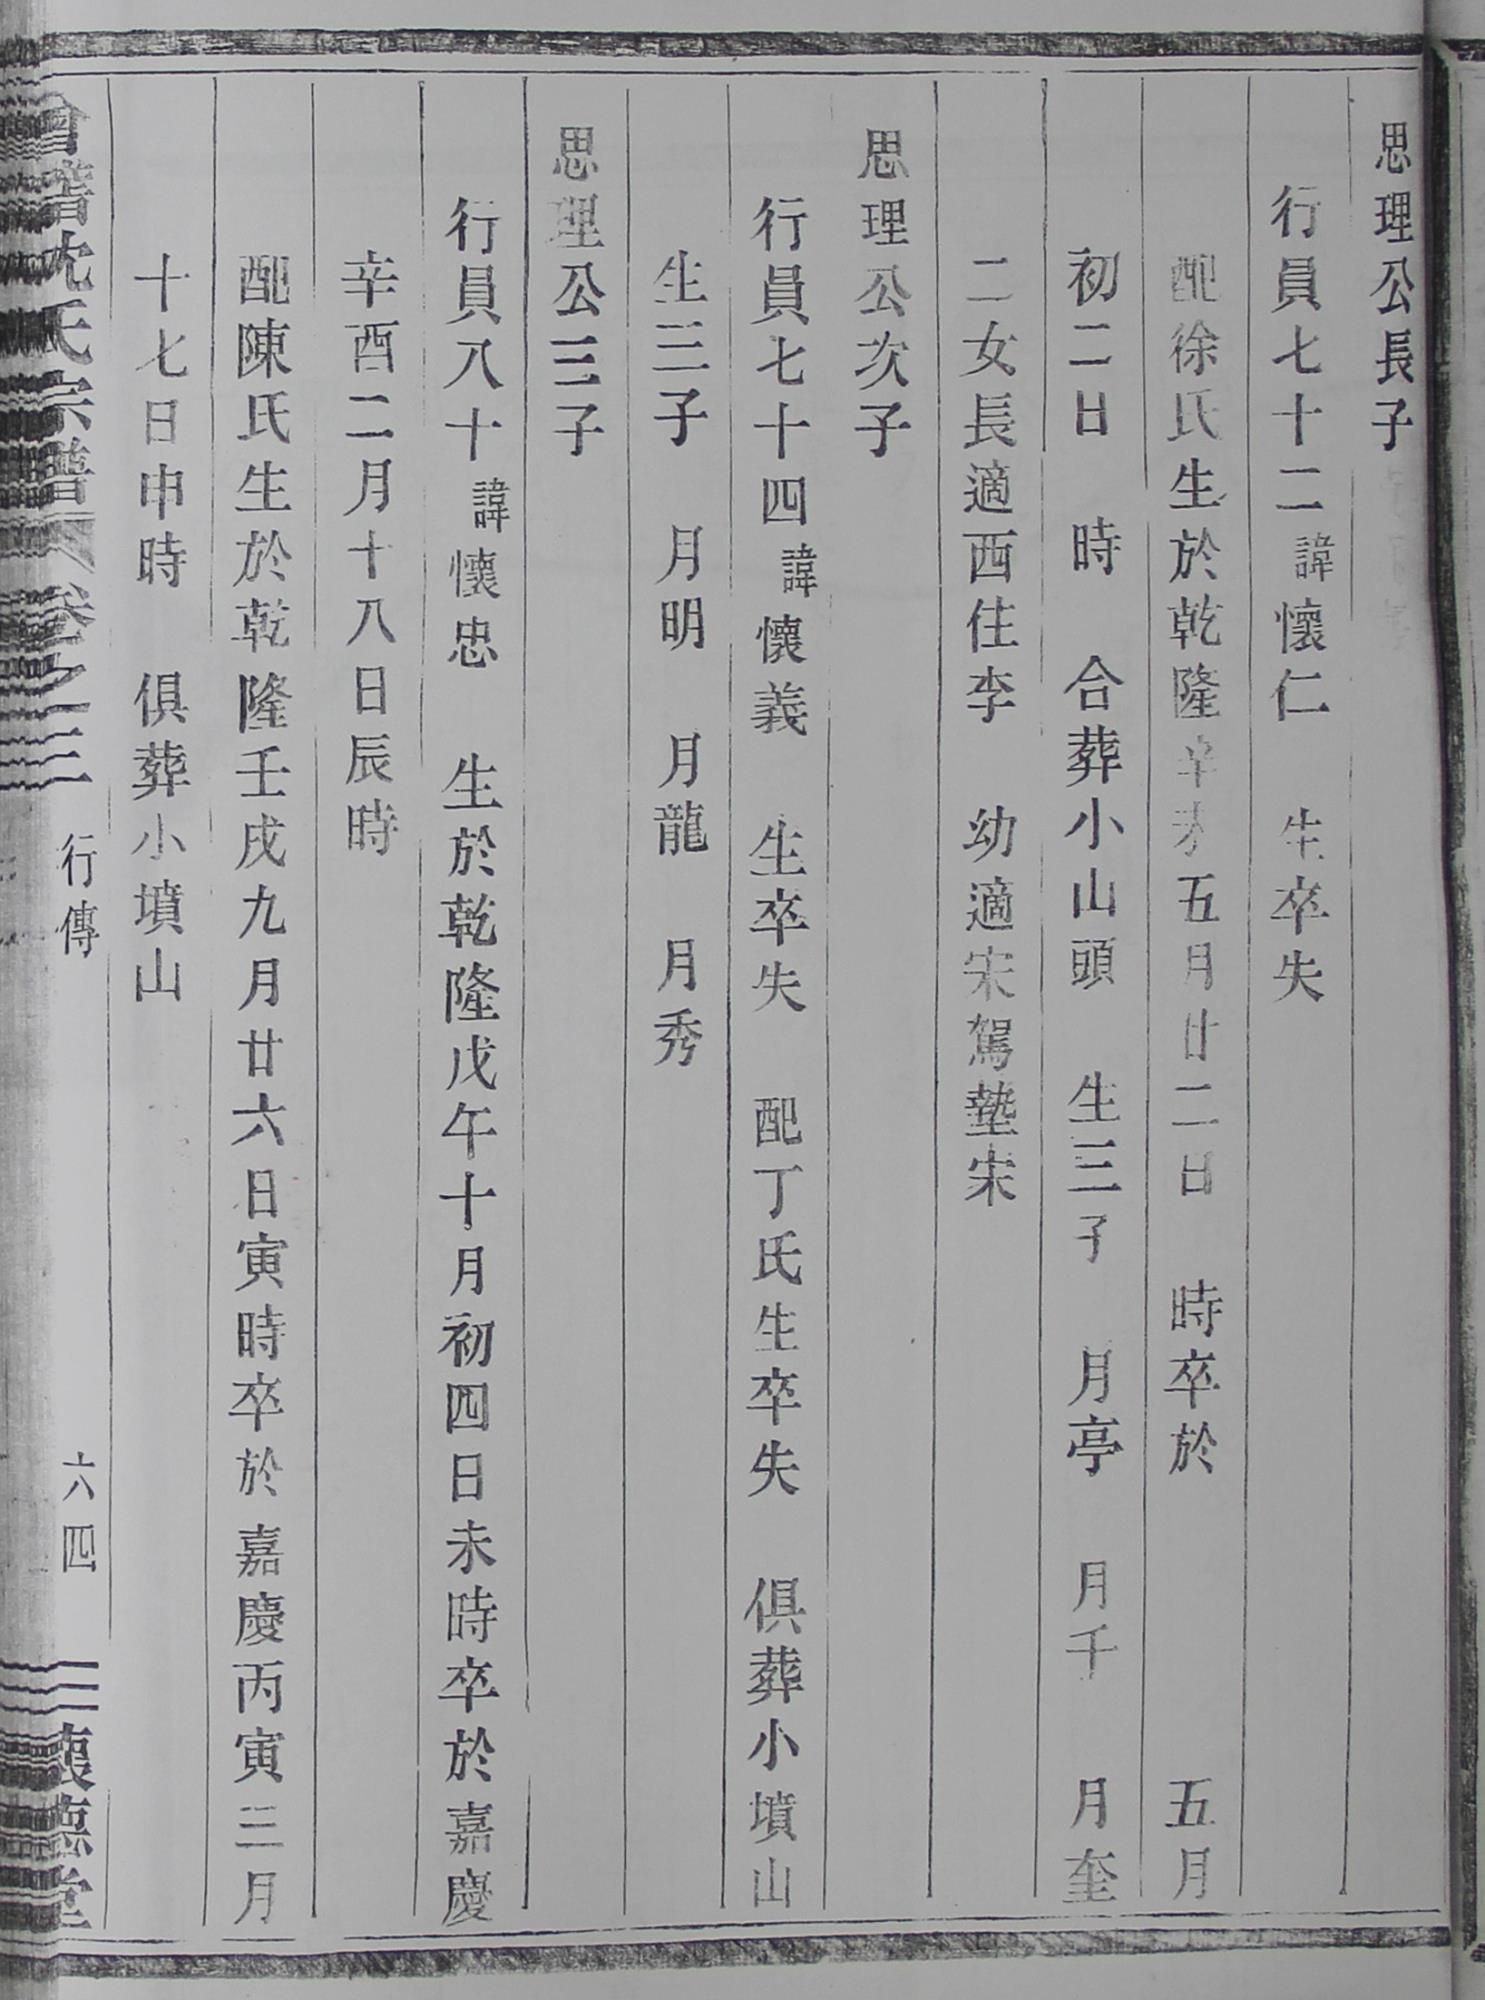 思理公長子
行員七十二諱懷仁　生卒失
配徐氏生於乾隆辛　五月廿二日　時卒於　五月
初二日　時　合葬小山頭　生三子　月亭　月千　月奎
二女長適西住李　幼適宋駕墊宋
思理公次子
行員七十四諱懷義　生卒失　配丁氏生卒失　俱葬小墳山
生三子　月明　月龍　月秀
思理公三子
行員八十諱懷忠　生於乾隆戊午十月初四日未時卒於嘉慶
辛酉二月十八日辰時
配陳氏生於乾隆壬戌九月廿六日寅時卒於嘉慶丙寅三月
十七日申時　俱葬小墳山
會稽沈氏宗譜　卷之三　行傳　六四　懷德堂